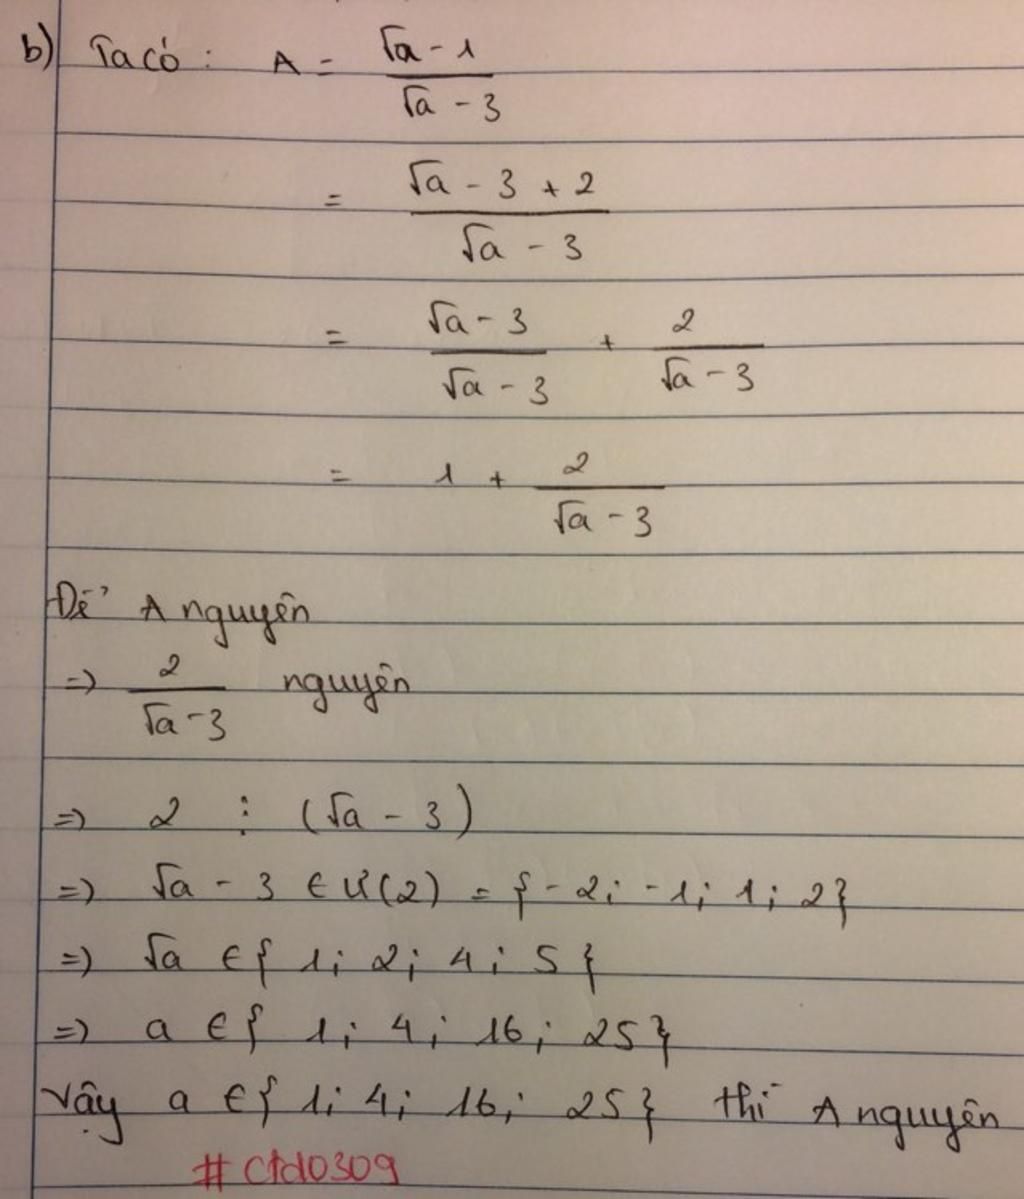 b) Ta có : A = (√a - 1)/(√a - 3)
= (√a - 3 + 2)/(√a - 3)
= (√a - 3)/(√a - 3) + 2/(√a - 3)
= 1 + 2/(√a - 3)
Để A nguyên
=) 2/(√a - 3) nguyên
=) 2 ⋮ (√a - 3)
=) √a - 3 ∈ Ư(2) = { - 2; -1; 1; 2}
=) √a ∈ { 1; 2; 4; 5 {
=) a ∈ { 1; 4; 16; 25}
Vậy a ∈ { 1; 4; 16; 25} thì A nguyên